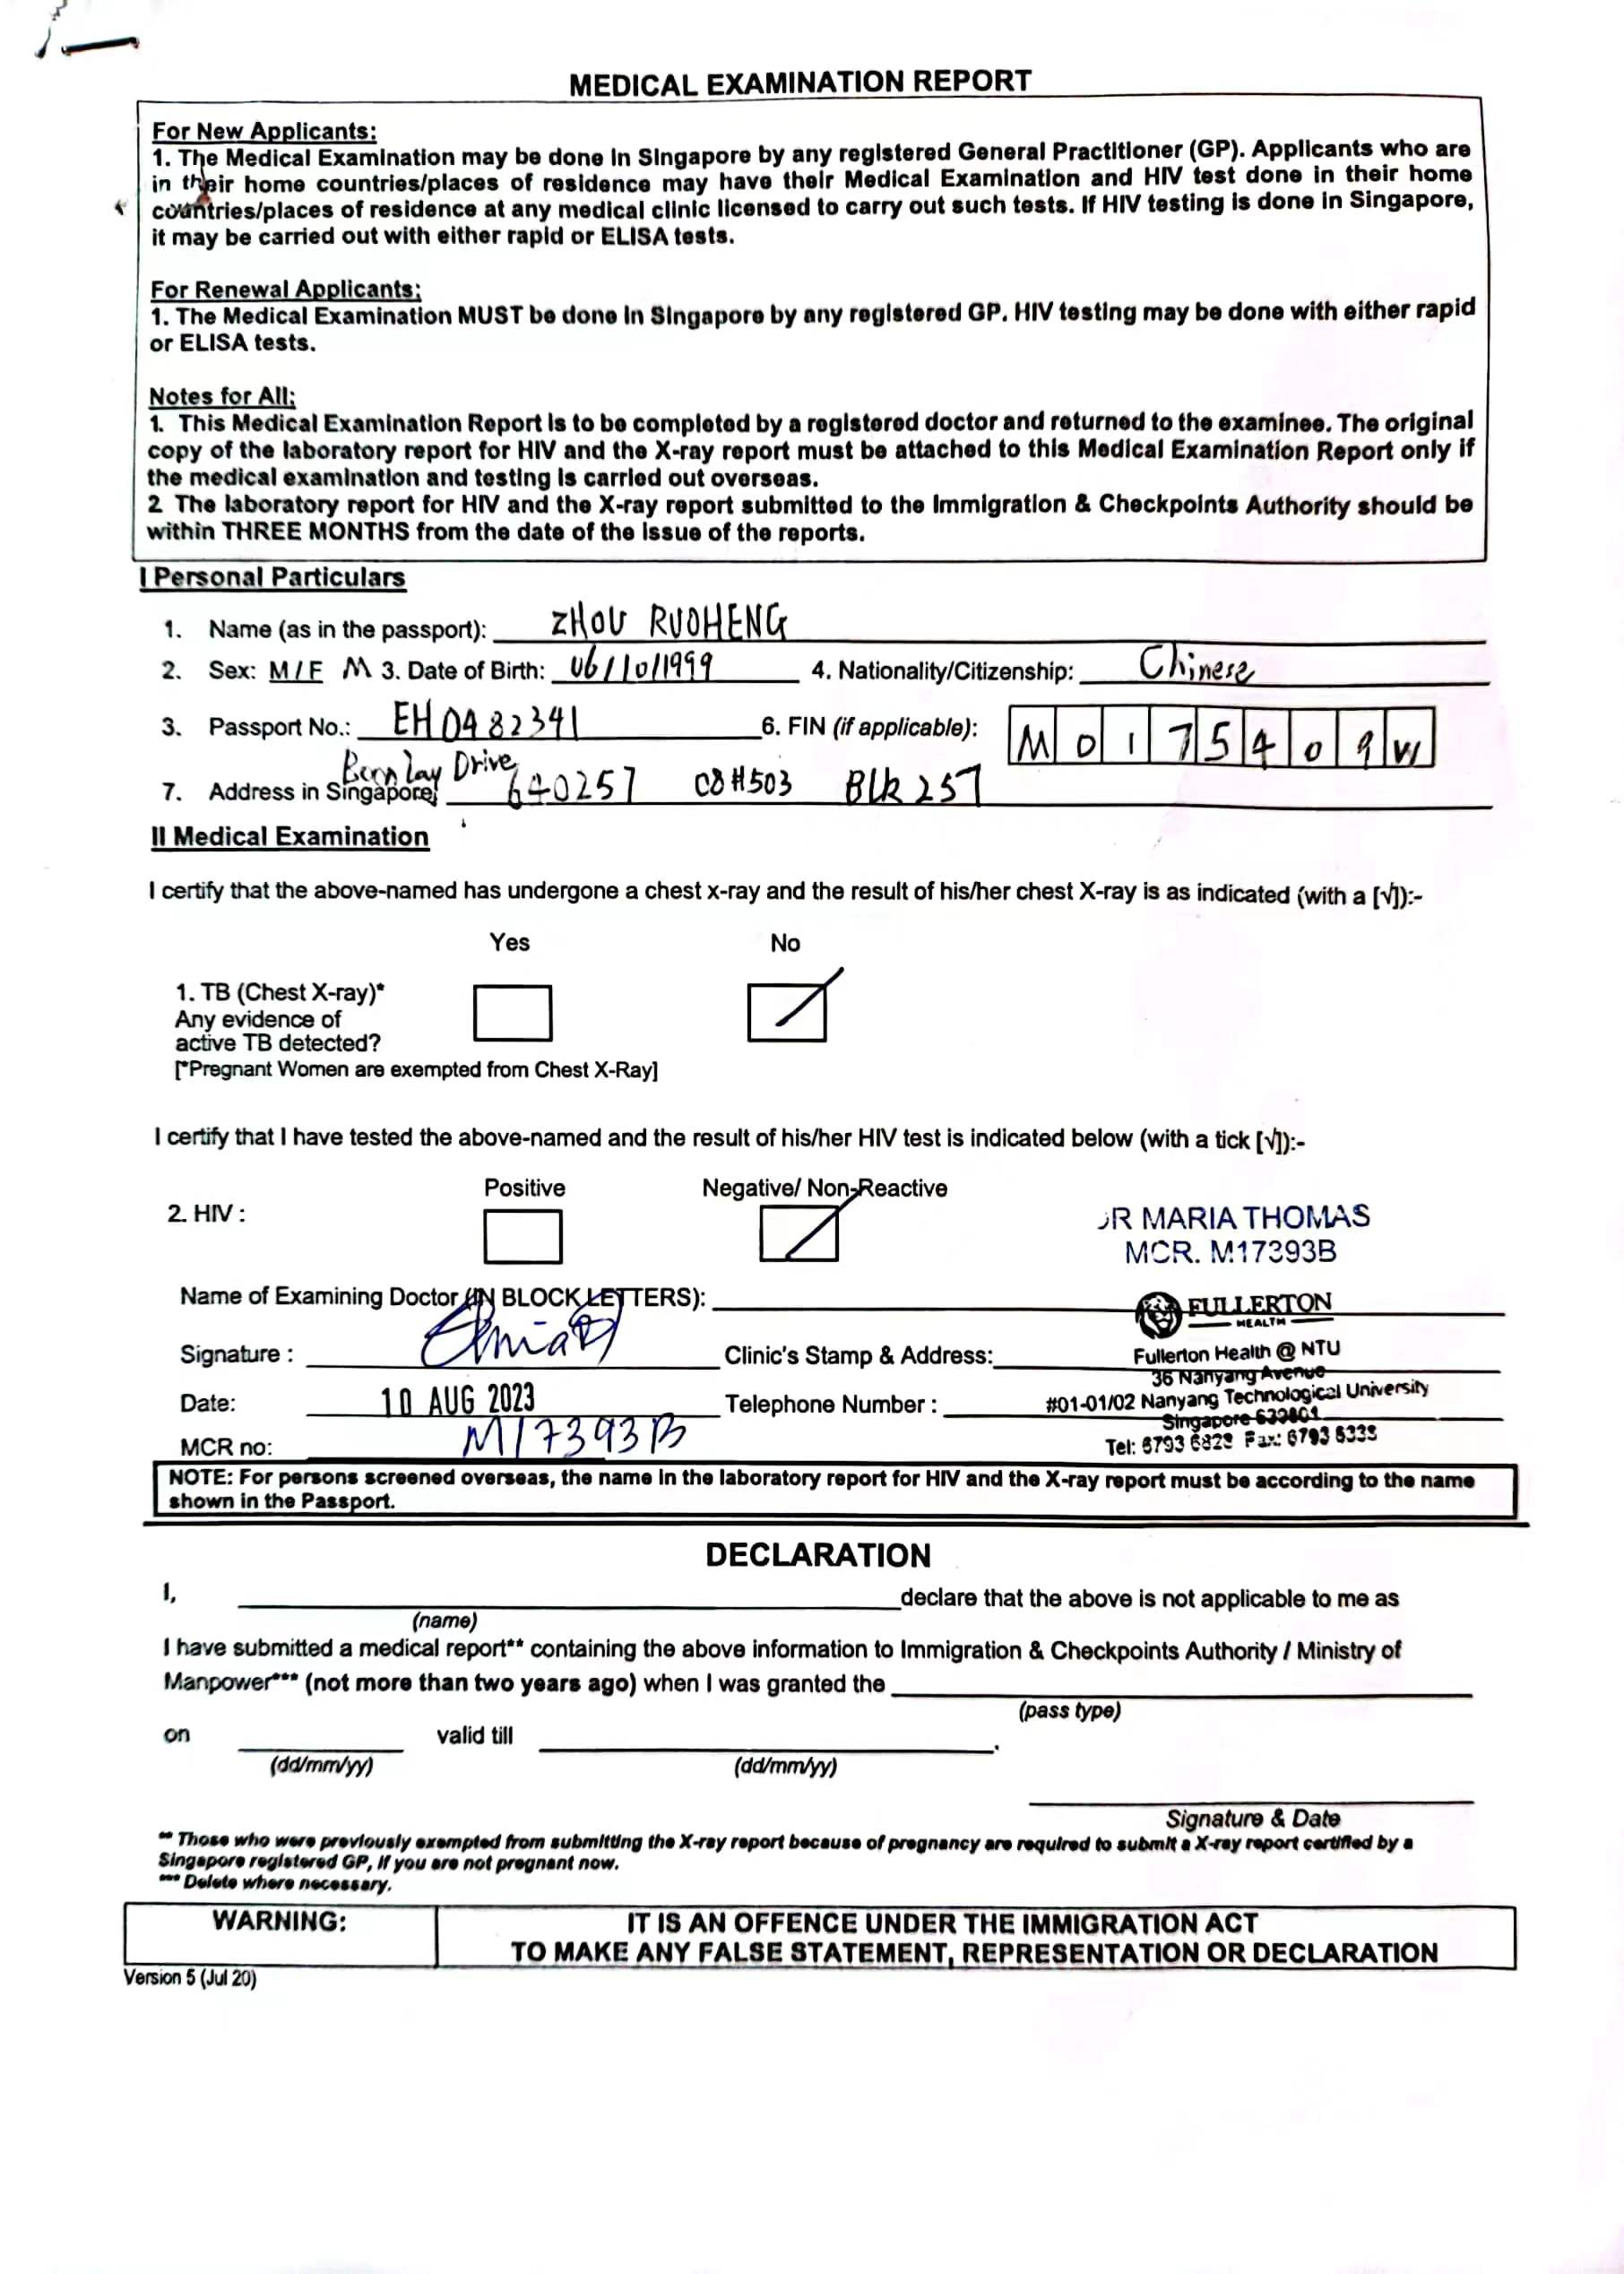 MEDICAL EXAMINATION REPORT
For New Applicants:
1. The Medical Examination may be done in Singapore by any registered General Practitioner (GP). Applicants who are
in their home countries/places of residence may have their Medical Examination and HIV test done in their home
countries/places of residence at any medical clinic licensed to carry out such tests. If HIV testing is done in Singapore,
it may be carried out with either rapid or ELISA tests.
For Renewal Applicants:
1. The Medical Examination MUST be done in Singapore by any registered GP. HIV testing may be done with either rapid
or ELISA tests.
Notes for All:
1. This Medical Examination Report is to be completed by a registered doctor and returned to the examinee. The original
copy of the laboratory report for HIV and the X-ray report must be attached to this Medical Examination Report only if
the medical examination and testing is carried out overseas.
2 The laboratory report for HIV and the X-ray report submitted to the Immigration & Checkpoints Authority should be
within THREE MONTHS from the date of the issue of the reports.
I Personal Particulars
1. Name (as in the passport): ZHOU RUOHENG
2. Sex: M / F M 3. Date of Birth: 06/10/1999 4. Nationality/Citizenship: Chinese
3. Passport No.: EH0482341 6. FIN (if applicable): M0175409W
Boon Lay Drive
7. Address in Singapore: 640257 08#503 Blk 257
II Medical Examination
I certify that the above-named has undergone a chest x-ray and the result of his/her chest X-ray is as indicated (with a [√]):-
Yes No
1. TB (Chest X-ray)*
Any evidence of
active TB detected?
[*Pregnant Women are exempted from Chest X-Ray]
I certify that I have tested the above-named and the result of his/her HIV test is indicated below (with a tick [√]):-
Positive Negative/ Non-Reactive
2. HIV :
DR MARIA THOMAS
MCR. M17393B
Name of Examining Doctor (IN BLOCK LETTERS):
FULLERTON
HEALTH
Signature : Clinic's Stamp & Address: Fullerton Health @ NTU
36 Nanyang Avenue
Date: 10 AUG 2023 Telephone Number : #01-01/02 Nanyang Technological University
Singapore 639801
MCR no: M17393B Tel: 6793 6828 Fax: 6793 5338
NOTE: For persons screened overseas, the name in the laboratory report for HIV and the X-ray report must be according to the name
shown in the Passport.
DECLARATION
I, declare that the above is not applicable to me as
(name)
I have submitted a medical report** containing the above information to Immigration & Checkpoints Authority / Ministry of
Manpower*** (not more than two years ago) when I was granted the
(pass type)
on valid till .
(dd/mm/yy) (dd/mm/yy)
Signature & Date
** Those who were previously exempted from submitting the X-ray report because of pregnancy are required to submit a X-ray report certified by a
Singapore registered GP, if you are not pregnant now.
*** Delete where necessary.
WARNING: IT IS AN OFFENCE UNDER THE IMMIGRATION ACT
TO MAKE ANY FALSE STATEMENT, REPRESENTATION OR DECLARATION
Version 5 (Jul 20)